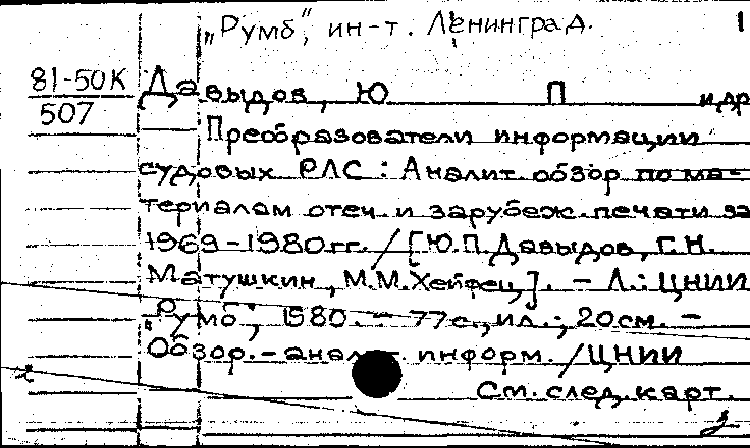 „Румб", ин-т. Ленинград. 1
81-50К Давыдов, Ю П и др
507
Преобразователи информации
судовых РЛС : Аналит. обзор по ма-
териалам отеч. и зарубеж. печати за
1969-1980гг. / [Ю.П. Давыдов, Г.Н.
Матушкин, М.М. Хейфец]. - Л.: ЦНИИ
„Румб", 1980. - 77с., ил.; 20см. -
(Обзор.-аналит. информ. / ЦНИИ
См. след. карт.